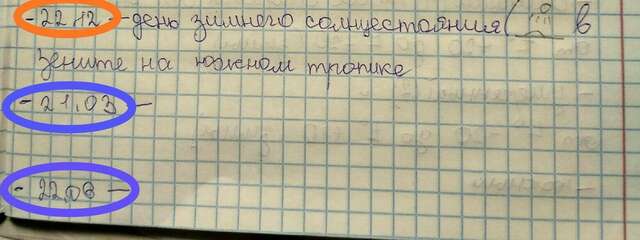 - 22.12 - день зимнего солнцестояния ( в
Зените на южном тропике
- 21.03 -
- 22.06 -